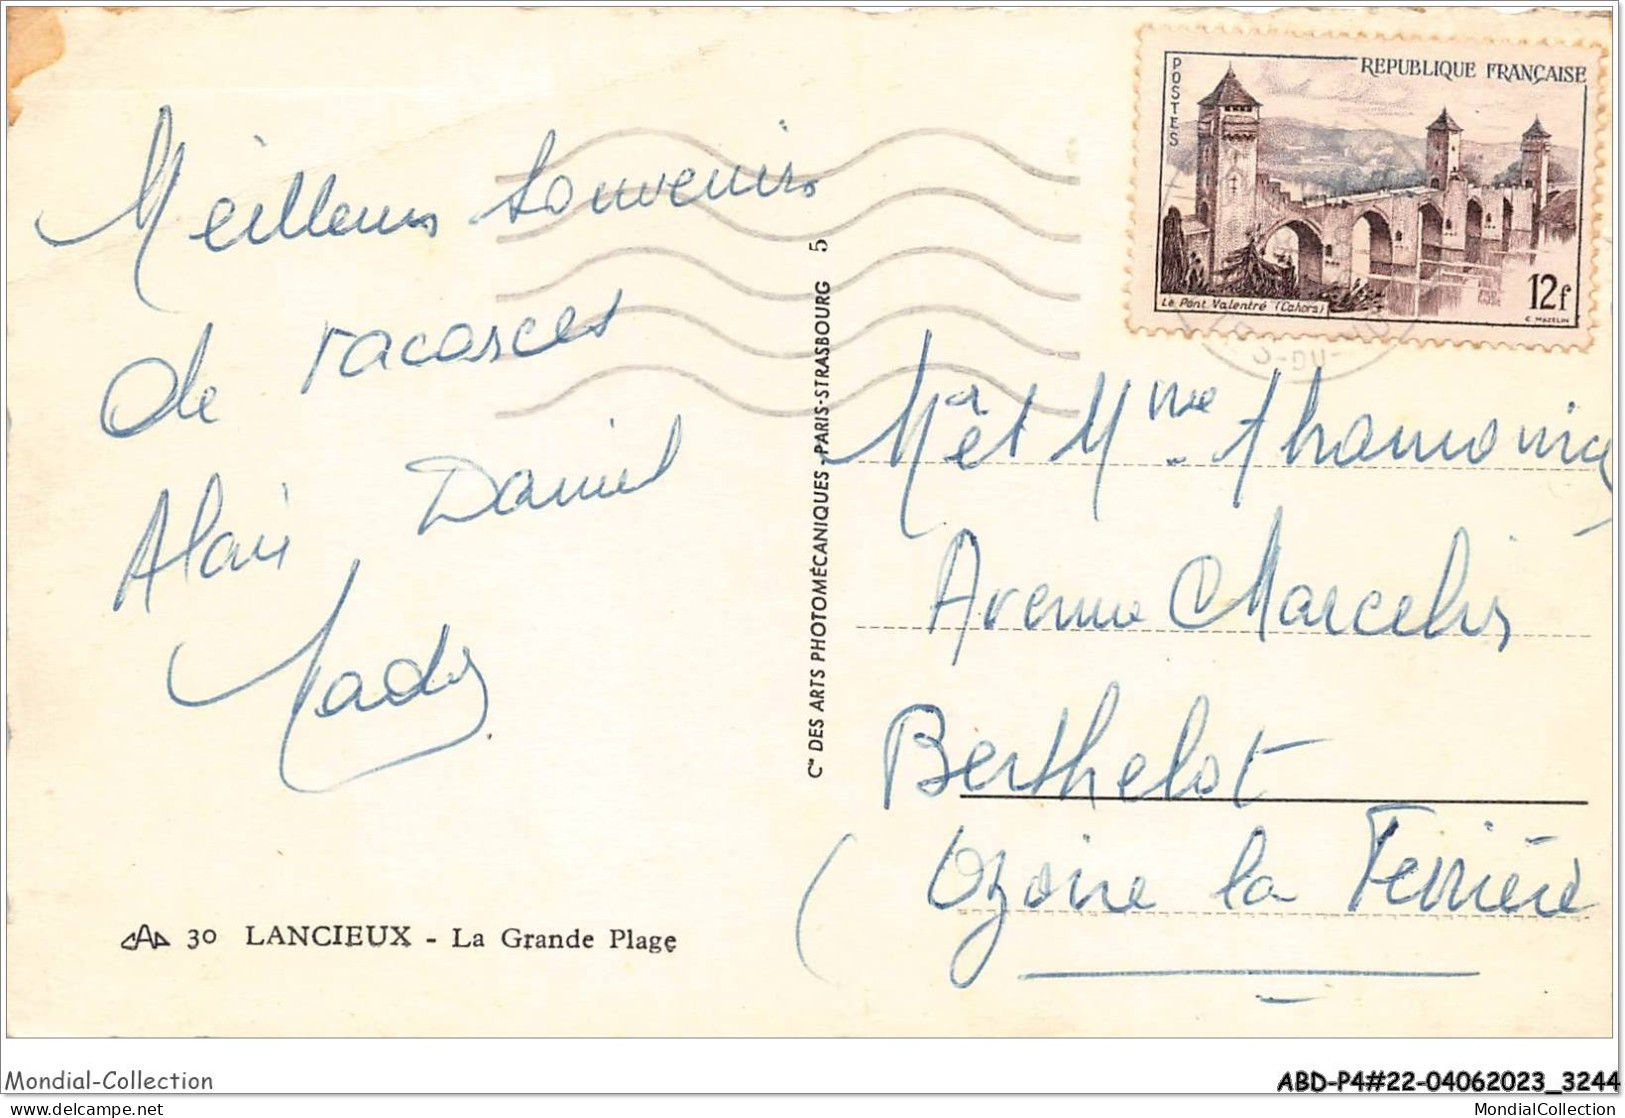 Meilleurs souvenirs
de vacances
Alain Daniel
Mady
30 LANCIEUX - La Grande Plage
Cie DES ARTS PHOTOMÉCANIQUES - PARIS-STRASBOURG 5
POSTES
REPUBLIQUE FRANÇAISE
Le Pont Valentré (Cahors)
12f
C. MAZELIN
S-DU-
Mr et Mme
Avenue Marcelin
Berthelot
Ozoire la Ferrière
(
Mondial-Collection
ABD-P4#22-04062023_3244
MondialCollection